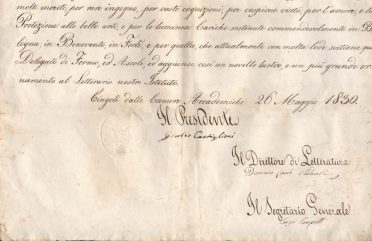 molti meriti, per raro ingegno, per vaste cognizioni, per cospicue virtù, per l'amore, e la
Protezione alle belle arti, e per le luminose Cariche sostenute commendevolmente in Bo-
logna, in Benevento, in Forlì, e per quella, che attualmente con molta lode sostiene qual
Delegato di Fermo, ed Ascoli, ed aggiunse così un novello lustro, e un più grande or-
namento al Letterario nostro Istituto.
Cingoli dalle Camere Accademiche 26 Maggio 1830.
Il Presidente
Castiglioni
Il Direttore di Letteratura
Il Segretario Generale